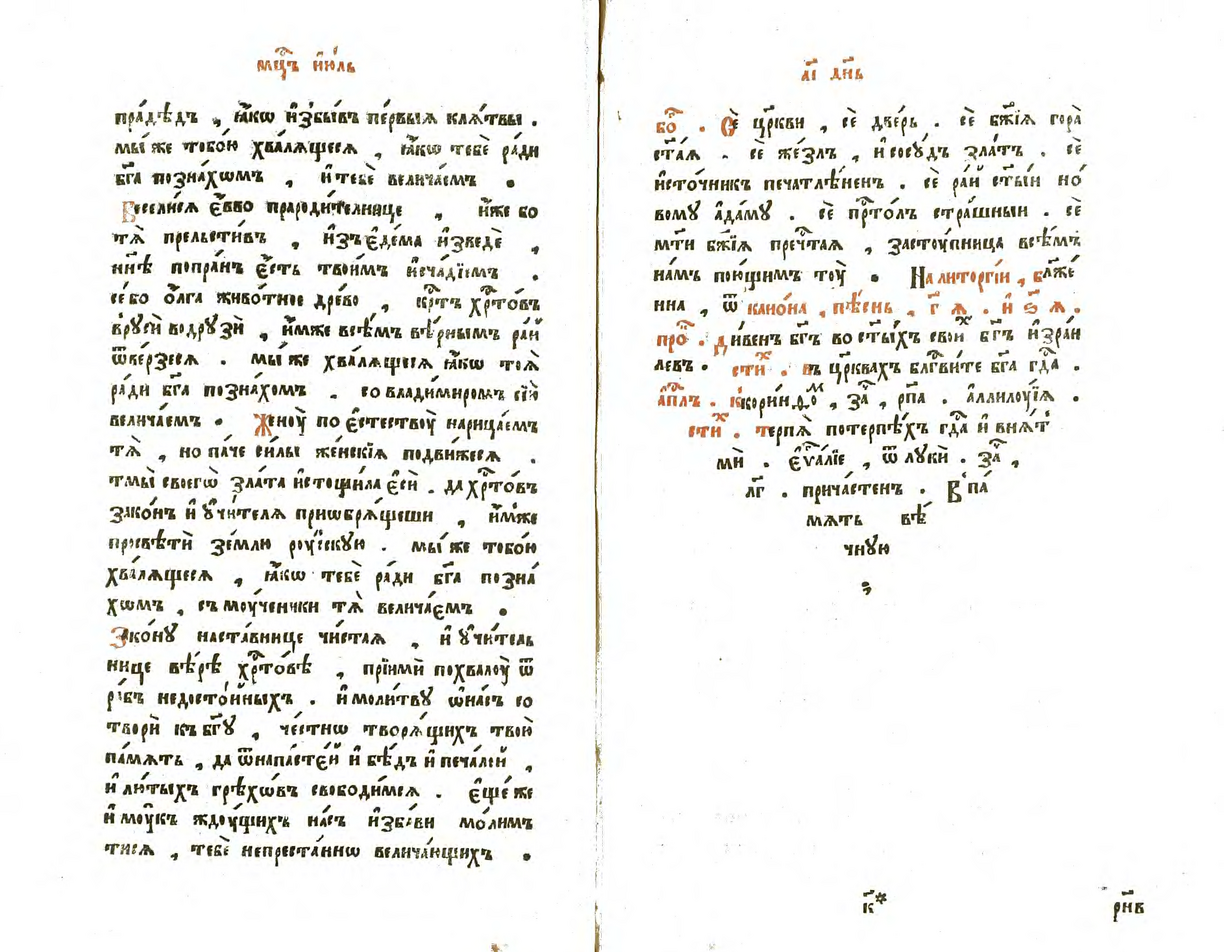 мцⷭ҇ъ і҆ю́ль
пра́дѣдъ , ꙗ҆́кѡ и҆збы́въ пе́рвыѧ клѧ́твы .
мы́ же тобо́ю хвалѧ́щесѧ , ꙗ҆́кѡ тебѐ ра́ди
бг҃а позна́хѡмъ , и҆ тебѐ велича́емъ .
Весели́сѧ є҆́вво прароди́телнице , и҆́же бо
тѧ̀ прельсти́въ , и҆зъ є҆де́ма и҆зведѐ ,
нн҃ѣ попра́нъ є҆́сть твои́мъ и҆сча́дїемъ .
се́ бо ѻ҆́лга живо́тное дре́во , крⷭ҇тъ хрⷭ҇то́въ
в руси́ водрузѝ , и҆́мже всѣ́мъ вѣ́рнымъ ра́й
ѿве́рзесѧ . мы́ же хвалѧ́щесѧ ꙗ҆́кѡ тоѧ̀
ра́ди бг҃а позна́хомъ . со влади́миромъ сїю̀
велича́емъ . Женоу̀ по є҆стествоу̀ нарица́емъ
тѧ̀ , но па́че си́лы же́нскїѧ подви́жесѧ .
тмы̀ своегѡ̀ зла́та и҆стощи́ла є҆сѝ . да хрⷭ҇то́въ
зако́нъ и҆ ᲂу҆чи́телѧ приѡбрѧ́щеши , и҆́мже
просвѣтѝ зе́млю роу́сїскую . мы́ же тобо́ю
хвалѧ́щесѧ , ꙗ҆́кѡ тебѐ ра́ди бг҃а позна́
хѡмъ , съ моу́ченики тѧ̀ велича́емъ .
Зако́ну наста́внице чи́стаѧ , и҆ ᲂу҆чи́тель
нице вѣ́рѣ хрⷭ҇то́вѣ , прїимѝ похвалоу̀ ѿ
ра́бъ недосто́йныхъ . и҆ моли́тву ѡ҆ на́съ со
творѝ къ бг҃у , че́стнѡ творѧ́щихъ твою̀
па́мѧть , да ѿ напа́стей и҆ бѣ́дъ и҆ печа́лей ,
и҆ лю́тыхъ грѣхѡ́въ свободи́мсѧ . Є҆ще́ же
и҆ моу́къ ждоу́щихъ на́съ и҆зба́ви мо́лим
тисѧ , тебѐ непреста́ннѡ велича́ющихъ .
а҃і дн҃ь
бо̀ . Сѐ цр҃кви , сѐ две́рь . сѐ бж҃їѧ гора̀
ст҃а́ѧ . сѐ же́злъ , и҆ сосу́дъ зла́тъ . сѐ
и҆сто́чникъ печатлѣ́ненъ . сѐ ра́й ст҃ы́и но́
вому а҆да́му . сѐ прⷭ҇то́лъ стра́шныи . сѐ
мт҃и бж҃їѧ пречⷭ҇таѧ , засто́упница всѣ́мъ
на́мъ пою́щимъ тоу̀ . На литорги́и , бл҃же́
нна , ѿ кано́на , пѣ́снь , г҃ ѧ . и҆ ѕ҃ ѧ .
про̑ . Ди́венъ бг҃ъ во ст҃ы́хъ свои̑ⷯ бг҃ъ и҆зра́и
левъ . сти̑ⷯ . въ цр҃квахъ бл҃гви́те бг҃а гдⷭ҇а .
а҆пⷭ҇лъ . къ корин̾ѳоⷨ , за̑ , рп҃а . а҆ллилоу́їѧ .
сти̑ⷯ . терпѧ̀ потерпѣ́хъ гдⷭ҇а и҆ внѧ́т̾
мѝ . є҆ѵⷢ҇а́лїе , ѿ лукѝ . за̑ ,
лг҃ . прича́стенъ . В па́
мѧть вѣ́
чную
к҃*
рнв